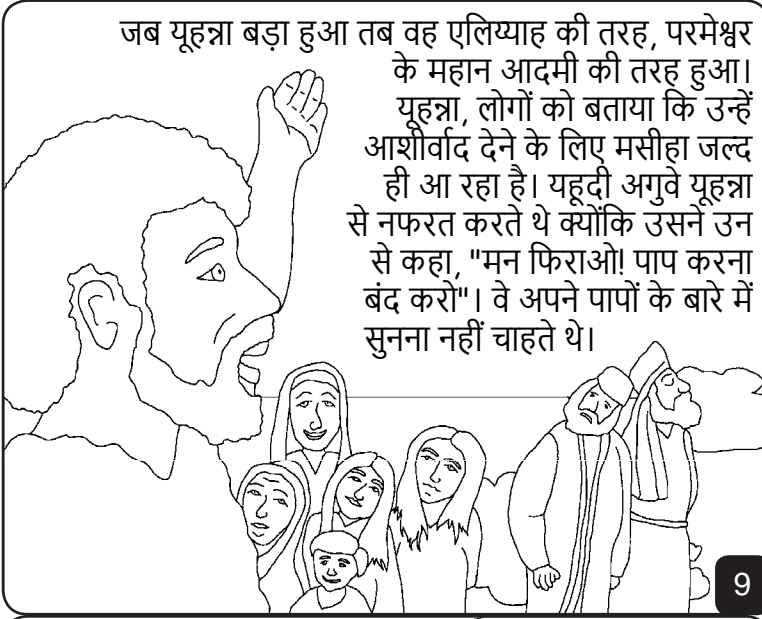 जब यूहन्ना बड़ा हुआ तब वह एलिय्याह की तरह, परमेश्वर
के महान आदमी की तरह हुआ।
यूहन्ना, लोगों को बताया कि उन्हें
आशीर्वाद देने के लिए मसीहा जल्द
ही आ रहा है। यहूदी अगुवे यूहन्ना
से नफरत करते थे क्योंकि उसने उन
से कहा, "मन फिराओ! पाप करना
बंद करो"। वे अपने पापों के बारे में
सुनना नहीं चाहते थे।
9